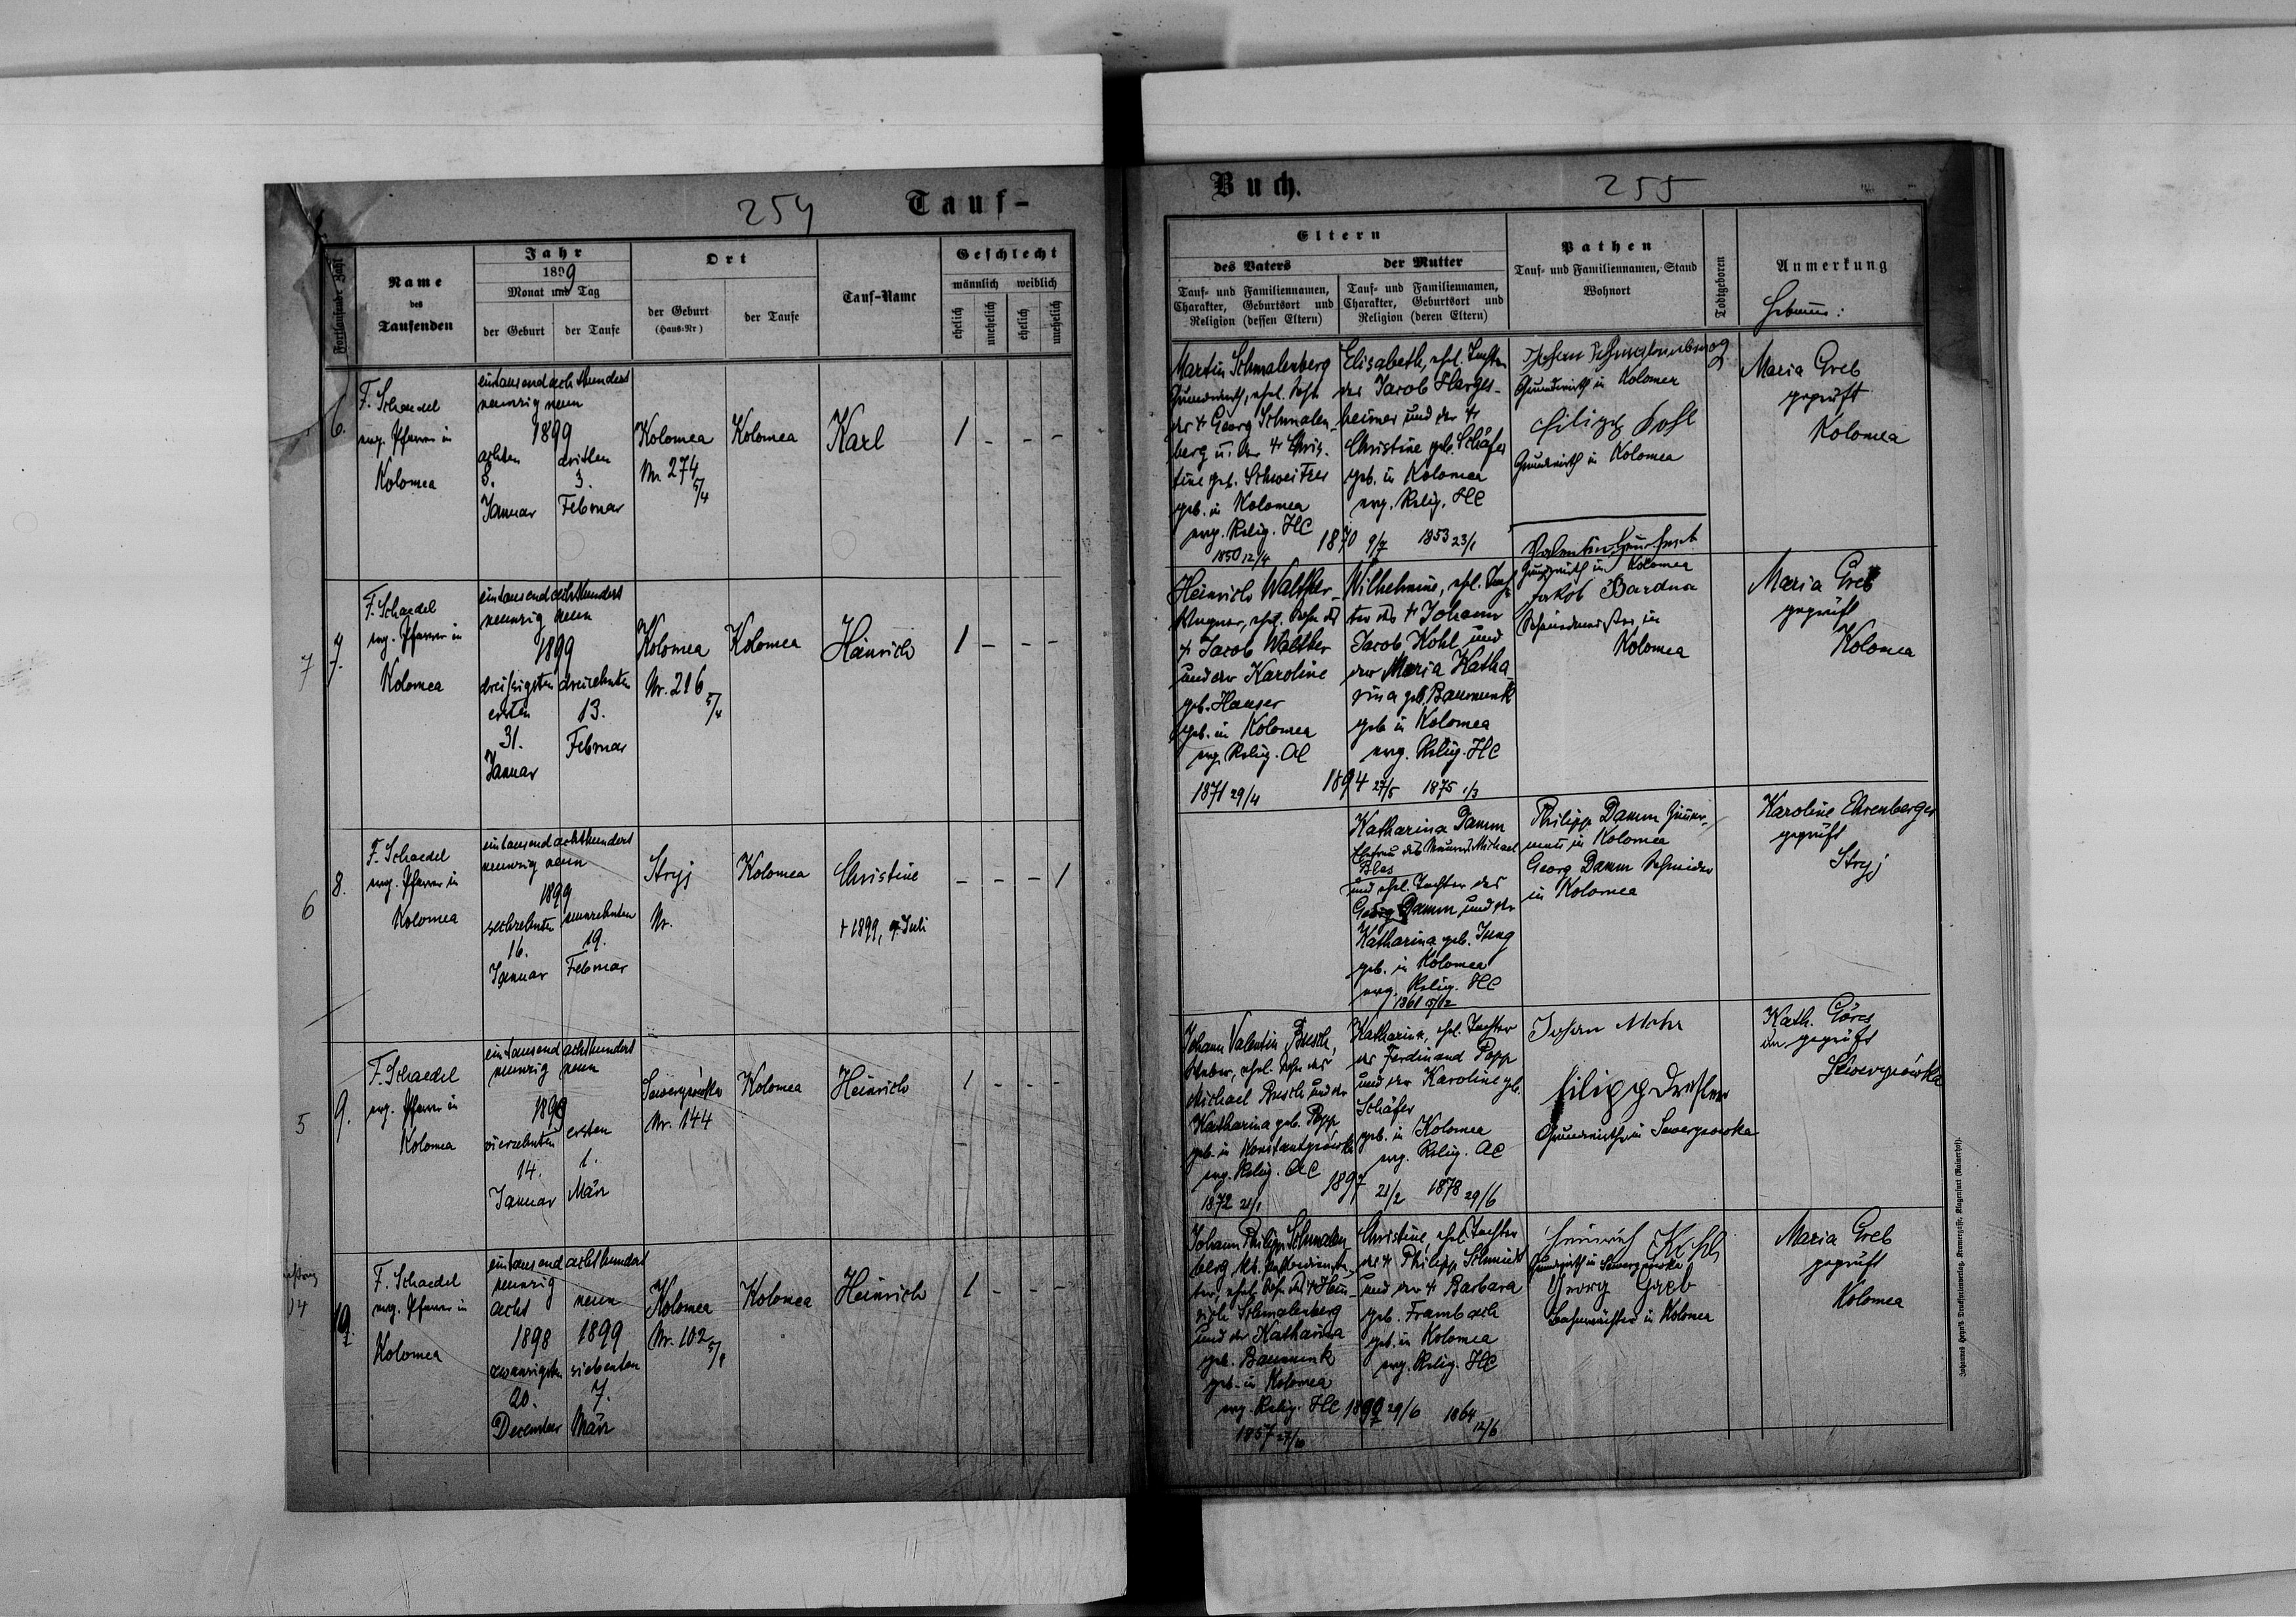 254 Tauf-
Fortlaufende Zahl
Name
des
Taufenden
Jahr
1899
Monat und Tag
der Geburt
der Taufe
Ort
der Geburt
(Haus-Nr)
der Taufe
Tauf-Name
Geschlecht
männlich weiblich
ehelich
unehelich
ehelich
unehelich
6.
F. Schaedel
evg. Pfarrer in
Kolomea
eintausendachthundert
neunzig neun
1899
achten
8.
Januar
dritten
3.
Februar
Kolomea
Nr. 274
5/4
Kolomea
Karl
1 - - -
7
7.
F. Schaedel
evg. Pfarrer in
Kolomea
eintausendachthundert
neunzig neun
1899
dreißigsten
ersten
31.
Januar
dreizehnten
13.
Februar
Kolomea
Nr. 216
5/4
Kolomea
Heinrich
1 - - -
6
8.
F. Schaedel
evg. Pfarrer in
Kolomea
eintausendachthundert
neunzig neun
1899
sechzehnten
16.
Januar
neunzehnten
19.
Februar
Stryj
Nr.
Kolomea
Christine
+ 1899, 9. Juli
- - - 1
5
9.
F. Schaedel
evg. Pfarrer in
Kolomea
eintausendachthundert
neunzig neun
1899
vierzehnten
14.
Januar
ersten
1.
März
Sewerynówka
Nr. 144
Kolomea
Heinrich
1 - - -
14
10.
F. Schaedel
evg. Pfarrer in
Kolomea
eintausendachthundert
neunzig
acht
1898
zwanzigsten
20.
December
neun
1899
siebenten
7.
März
Kolomea
Nr. 102
5/4
Kolomea
Heinrich
1 - - -
Buch. 255
Eltern
des Vaters
Tauf- und Familiennamen,
Charakter, Geburtsort und
Religion (dessen Eltern)
der Mutter
Tauf- und Familiennamen,
Charakter, Geburtsort und
Religion (deren Eltern)
Pathen
Tauf- und Familiennamen, Stand
Wohnort
Todtgeboren
Anmerkung
Hebamme:
Martin Schmalenberg
Grundwirth, ehel. Sohn
des + Georg Schmalen-
berg u. der + Chris-
tine geb. Schweitzer
geb. in Kolomea
evg. Relig. HC
1850 12/4
1870 9/7
Elisabeth, ehel. Tochter
des Jacob Harges-
heimer und der +
Christine geb. Schäfer
geb. in Kolomea
evg. Relig. HC
1853 23/1
Johan Schmalenberg
Grundwirth in Kolomea
Filipp Kohl
Grundwirth in Kolomea
Maria Greb
geprüft
Kolomea
Heinrich Walther
Klempner, ehel. Sohn des
+ Jacob Walther
und der Karoline
geb. Hauser
geb. in Kolomea
evg. Relig. AC
1871 29/4
1894 27/5
Wilhelmine, ehel. Toch-
ter des + Johann
Jacob Kohl und
der Maria Katha
rina geb. Baumunk
geb. in Kolomea
evg. Relig. HC
1875 1/3
Valentin
Grundwirth in Kolomea
Jakob Bardua
Schmiedmeister in
Kolomea
Maria Greb
geprüft
Kolomea
Katharina Damm
Ehefrau des Maurers Michael
Blas
und ehel. Tochter des
Georg Damm und der
Katharina geb. Jung
geb. in Kolomea
evg. Relig. HC
Philipp Damm
in Kolomea
Georg Damm Schneider
in Kolomea
Karoline Ehrenberger
geprüft
Stryj
Johann Valentin Busch,
Weber, ehel. Sohn des
Michael Busch und der
Katharina geb. Popp
geb. in Konstantynówka
evg. Relig. AC
1872 21/1
1897 21/2
Katharina, ehel. Tochter
des Ferdinand Popp
und der Karoline geb.
Schäfer
geb. in Kolomea
evg. Relig. AC
1878 29/6
Johan Mohr
Filipp Dressler
Grundwirthe in Sewerynowka
Kath. Göres
un geprüft
Sewerynówka
Johann Philipp Schmalen
berg
ter, ehel. Sohn des + Hein-
rich Schmalenberg
und der Katharina
geb. Baumunk
geb. in Kolomea
evg. Relig. HC
1857 27/10
29/6
Christine, ehel. Tochter
des + Philipp Schmidt
und der + Barbara
geb. Frambach
geb. in Kolomea
evg. Relig. HC
1864
12/6
Heinrich Kohl
Grundwirth in Sewerynówka
Georg Greb
Bahnwächter in Kolomea
Maria Greb
geprüft
Kolomea